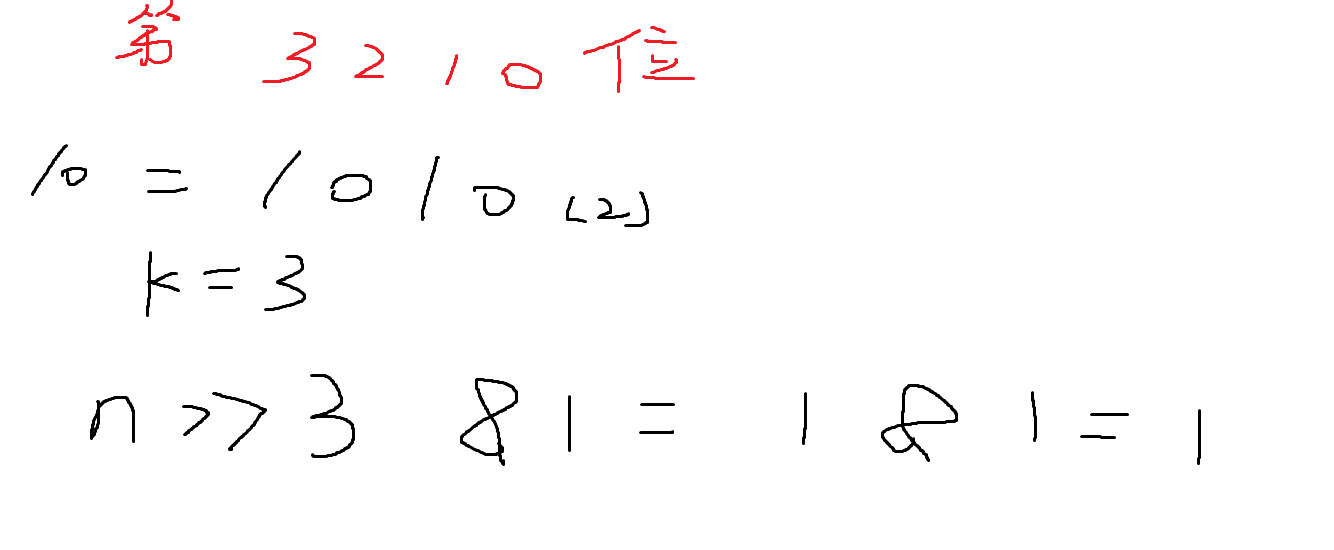 第 3 2 1 0 位
10 = 1 0 1 0 (2)
k = 3
n >> 3 & 1 = 1 & 1 = 1